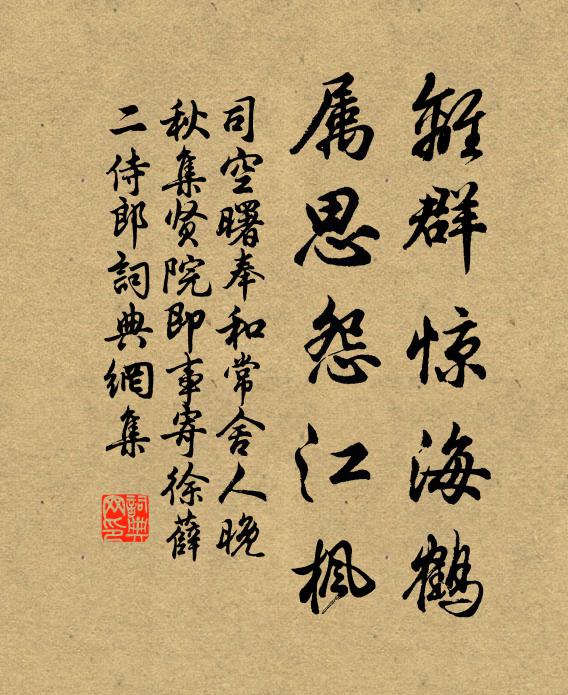 離群惊海鶴
属思怨江楓
司空曙奉和常舍人晚
秋集贤院即事寄徐薛
二侍郎詞典網集
詞典网印